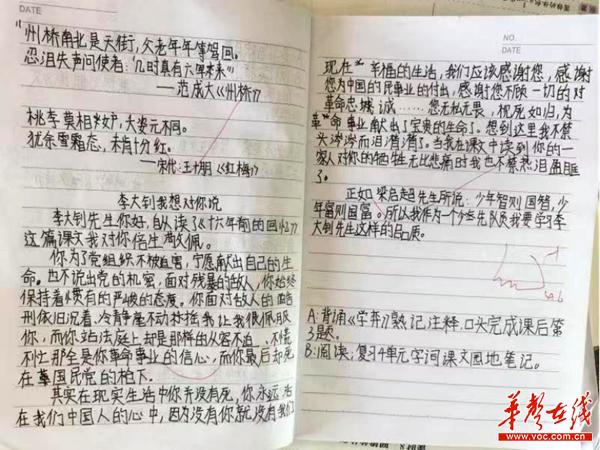 DATE
"州桥南北是天街,父老年年等驾回。
忍泪失声问使者:"几时真有六军来"
——范成大《州桥》
桃李莫相妒,夭姿元不同。
犹余雪霜态,未肯十分红。
——宋代:王十朋《红梅》
李大钊我想对你说
李大钊先生你好,自从读了《十六年前的回忆》
这篇课文我对你倍生敬佩。
你为了党组织不被血害,宁愿献出自己的生
命。也不说出党的机密,面对残暴的敌人,你始终
保持着惯有的严峻的态度。你面对敌人的
刑依旧沉着、冷静毫不动摇我让我很佩服
你,而你站法庭上却是那样的从容不迫、不慌
不忙那全是你革命事业的信心,而你最后却死
在国民党的枪下.
其实在现实生活中你并没有死,你永远活
在我们中国人的心中,因为没有你就没有我们
NO.
DATE
现在幸福的生活,我们应该感谢您,感谢
您为中国的民事业的付出,感谢您不顾一切的对
革命忠诚……您无私无畏,视死如归,为
革命事业献出了宝贵的生命了。想到这里我不禁
潸潸而泪满满了。当我在课文中读到你的一
家人对你的牺牲无比悲痛时我也不禁热泪盈眶
了。
正如梁启超先生所说:少年智则国智,少
年富则国富。所以我作为一个少先队员我要学习李
大钊先生这样的品质。
A:背诵《学弈》熟记注释.口头完成课后第
3题。
B:阅读,复习4单元字词课文园地笔记。
华声在线
www.voc.com.cn